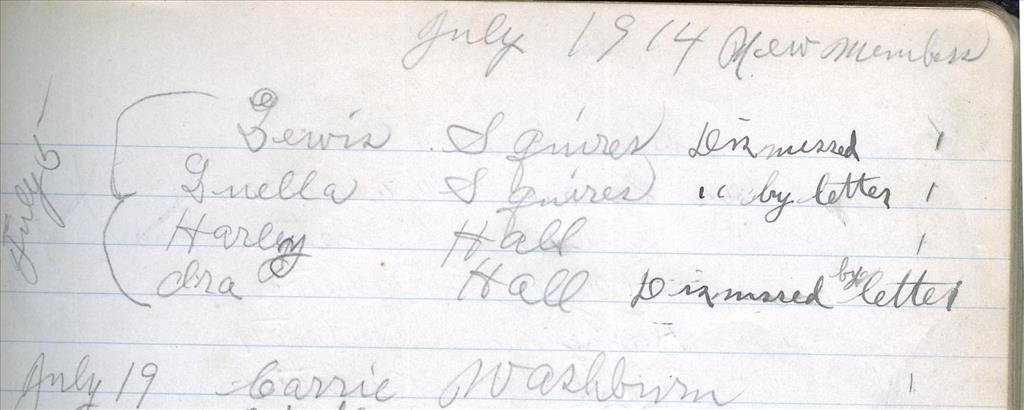 July 1914 New members
July 5
Lewis Squires Dismissed 1
Luella Squires " by letter 1
Harley Hall 1
Ira Hall Dismissed by letter 1
July 19 Carrie Washburn 1